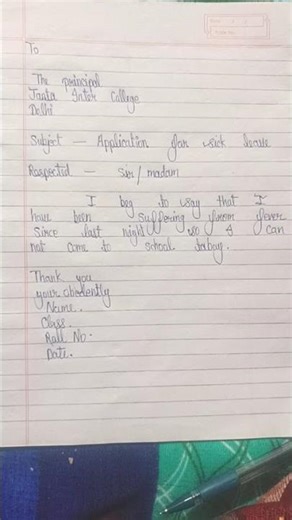 To
The principal
Janta Inter College
Delhi
Subject — Application for sick leave
Respected — Sir/madam
I beg to say that I
have been suffering from fever
Since last night so I can
not come to school today.
Thank you
your obediently
Name.
Class.
Roll No.
Date.